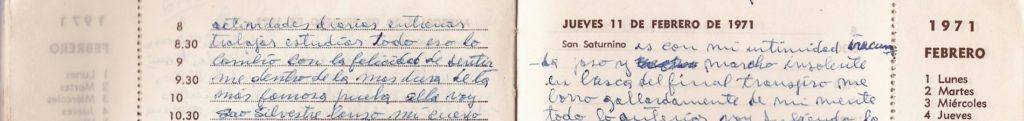 1971
FEBRERO
1 Lunes
2 Martes
3 Miércoles
4 Jueves
8 actividades diarias
8.30 trabajar estudiar todo eso lo
9 cambio con la felicidad de sentir
9.30 me dentro de la mordura de la
10 más famosa prueba allá voy
10.30 Sao Silvestre lanzo mi cuerpo
JUEVES 11 DE FEBRERO DE 1971
San Saturnino es con mi intimidad
da piso y marcho insolente
en busca del final transpiro me
borro gallardamente de mi mente
todo lo anterior voy buscando lo
1971
FEBRERO
1 Lunes
2 Martes
3 Miércoles
4 Jueves